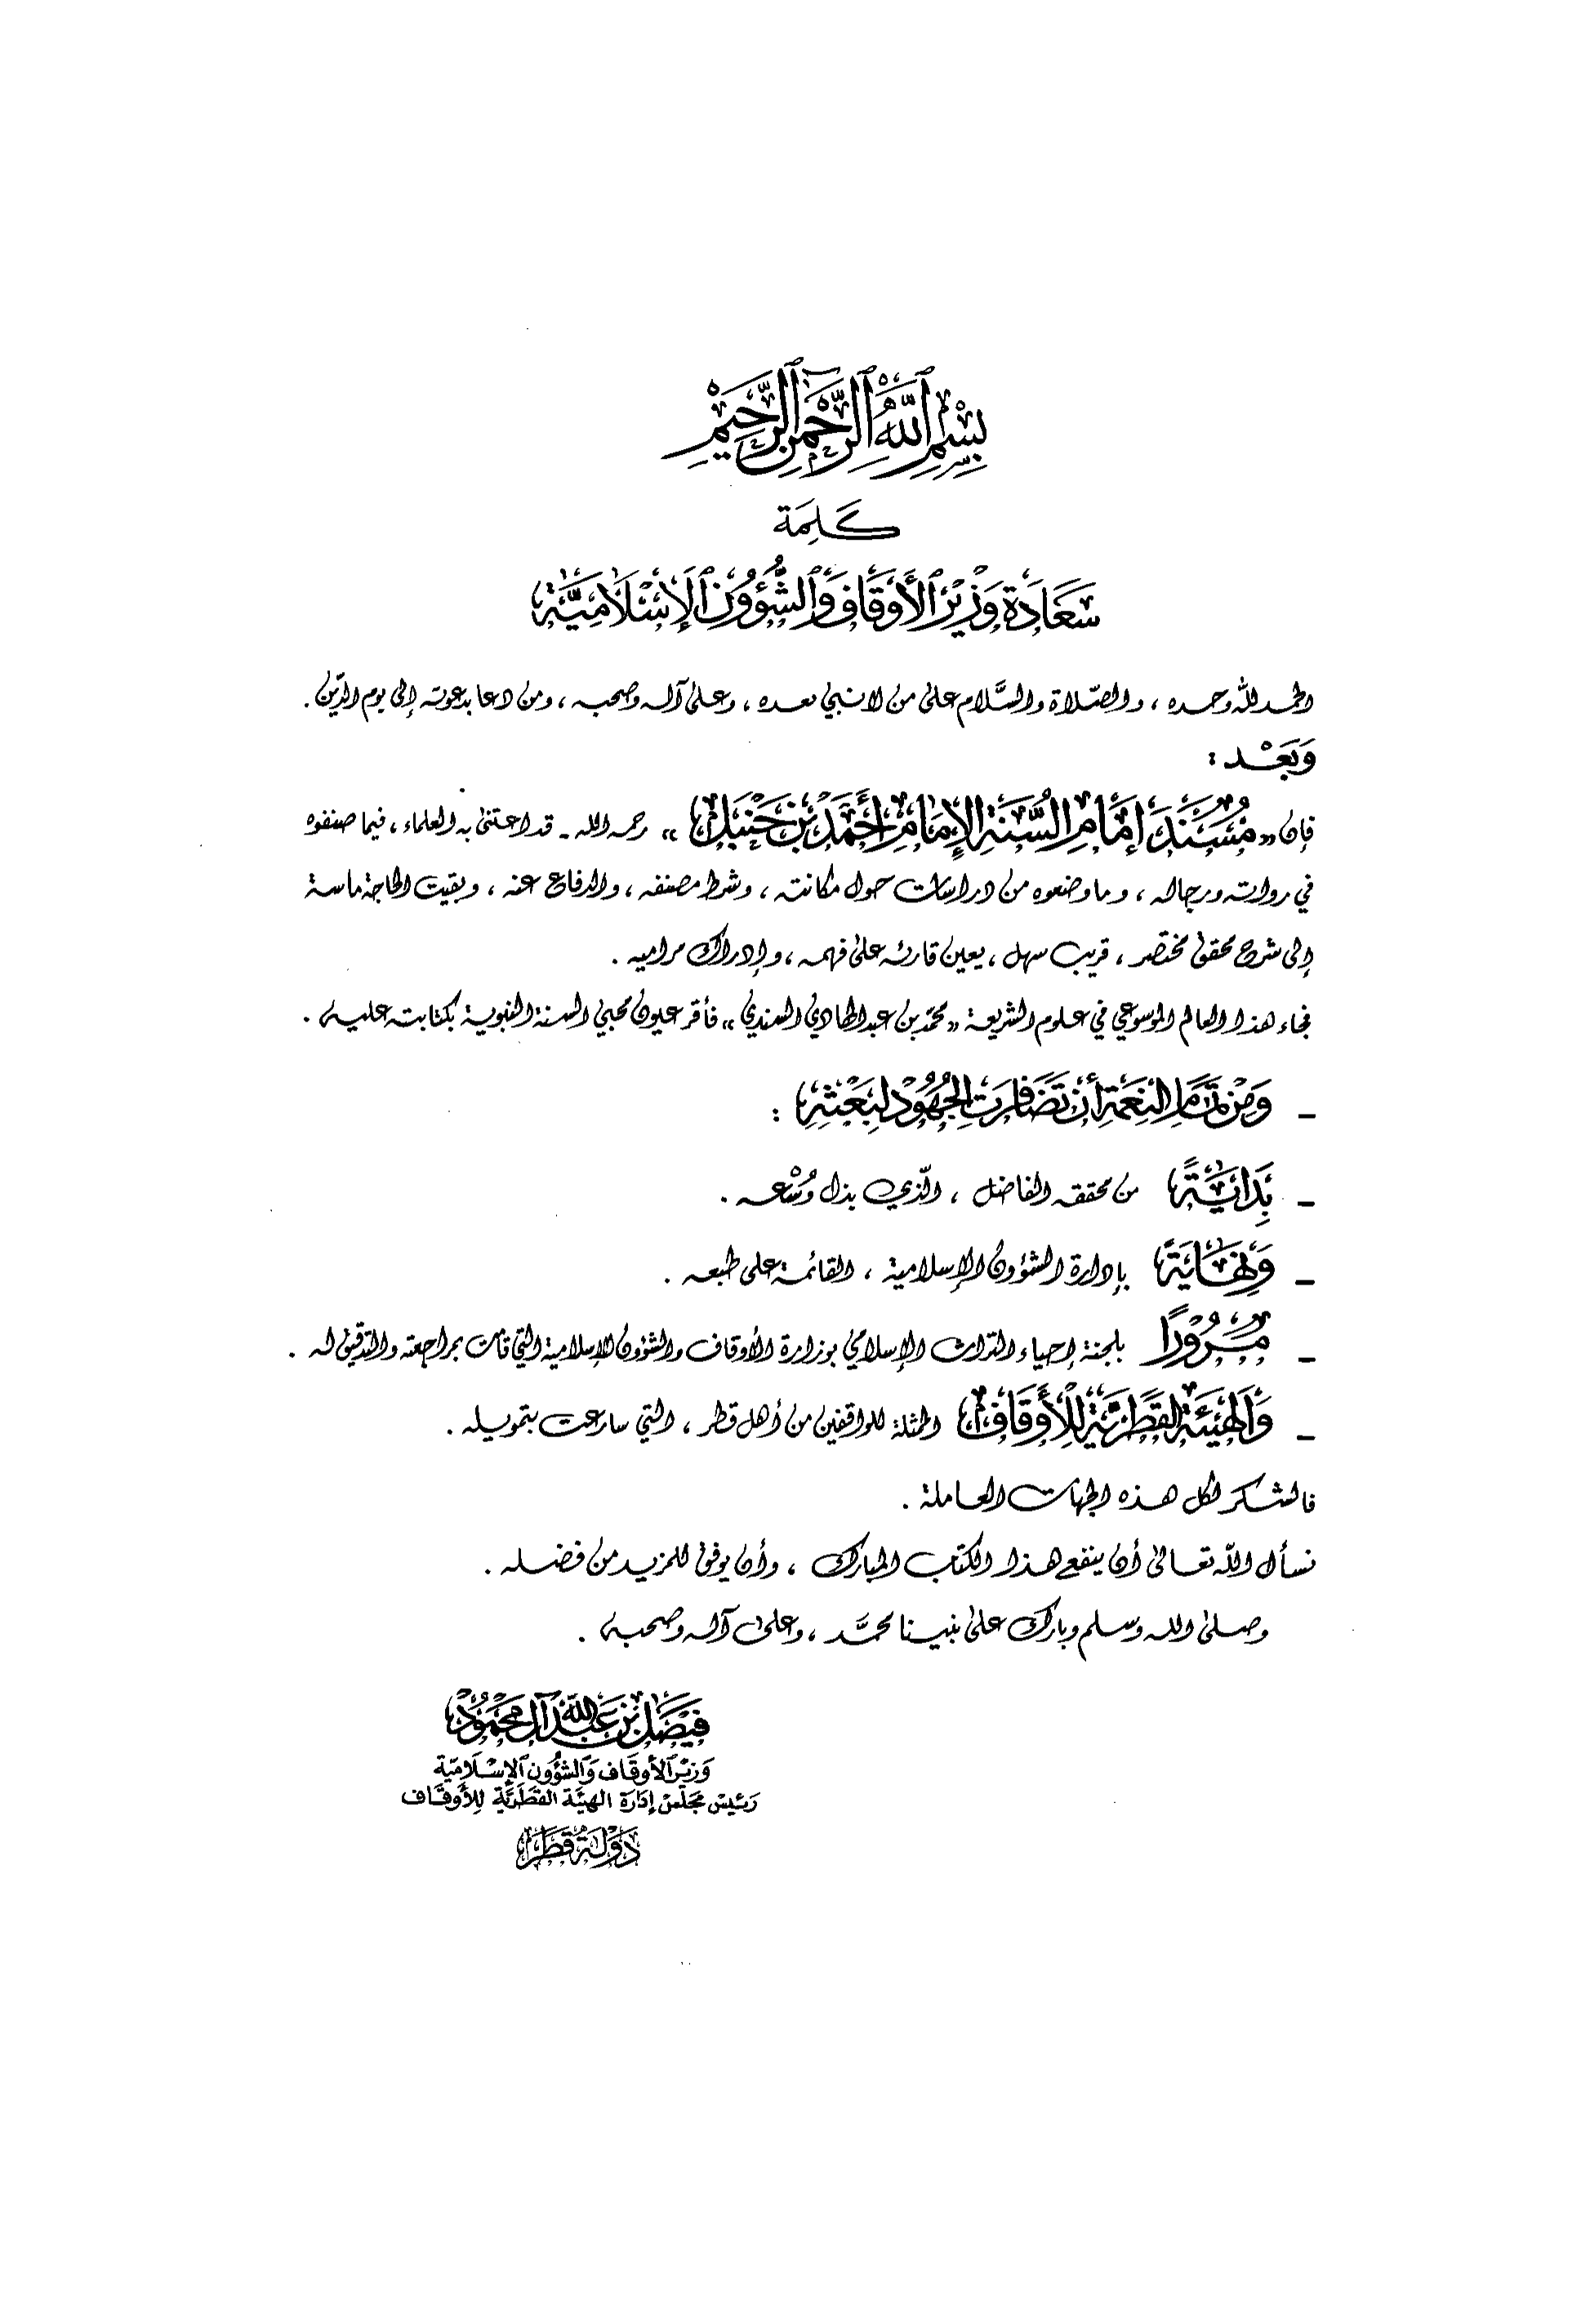 بِسْمِ ٱللَّهِ ٱلرَّحْمَٰنِ ٱلرَّحِيمِ
كَلِمَة
سَعَادَة وَزِيْرِ ٱلأَوْقَافِ وَٱلشُّؤُوْنِ ٱلإِسْلَامِيَّةِ
الحمد لله وحده ، والصّلاة والسَّلام على من لا نبي بعده ، وعلى آله وصحبه ، ومن دعا بدعوته إلى يوم الدّين .
وَبَعْد :
فإن «مُسْنَدَ إِمَامِ السُّنَّةِ الإِمَامِ أَحْمَدَ بْنِ حَنْبَلٍ» رحمه الله - قد اعتنى به العلماء ، فيما صنفوه
في رواته ورجاله ، وما وضعوه من دراسات حول مكانته ، وشرط مصنفه ، والدفاع عنه ، وبقيت الحاجة ماسة
إلى شرح محقق مختصر ، قريب سهل ، يعين قارئه على فهمه ، وإدراك مراميه .
فجاء هذا العالم الموسوعي في علوم الشريعة «محمّد بن عبد الهادي السندي» فأقر عيون محبي السنة النبوية بكتابته عليه .
- وَمِنْ تَمَامِ النِّعْمَةِ أَنْ تَضَافَرَتِ الجُهُوْدُ لِبَعْثِهِ :
- بِدَايَةً من محققه الفاضل ، الّذي بذل وُسْعه .
- وَنِهَايَةً بإدارة الشؤون الإسلامية ، القائمة على طبعه .
- مُرُوْرًا بلجنة إحياء التراث الإسلامي بوزارة الأوقاف والشؤون الإسلامية التي قامت بمراجعته والتدقيق له .
- وَالهَيْئَةِ القَطَرِيَّةِ لِلأَوْقَافِ الممثلة للواقفين من أهل قطر ، التي سارعت بتمويله .
فالشكر لكل هذه الجهات العاملة .
نسأل الله تعالى أن ينفع هذا الكتاب المبارك ، وأن يوفق للمزيد من فضله .
وصلى الله وسلم وبارك على نبينا محمَّد ، وعلى آله وصحبه .
فَيْصَل بْن عَبْدِ اللَّه آل مَحْمُوْد
وَزِيْرُ الأَوْقَاف وَالشُّؤُوْنِ الإِسْلَامِيّة
رَئِيْسُ مَجْلِسِ إِدَارَة الهيْئَة القَطَرِيَّة لِلأَوقَاف
دَوْلَةُ قَطَر